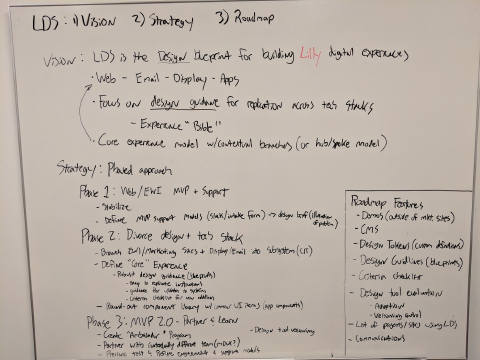 LDS: 1) Vision 2) Strategy 3) Roadmap
Vision: LDS is the Design blueprint for building Lilly digital experiences
· Web - Email - Display - Apps
· Focus on design guidance for replication across tech stacks
- Experience "Bible"
· Core experience model w/contextual branches (or hub/spoke model)
Strategy: Phased approach
Phase 1: Web/EWI MVP + Support
- Stabilize
- Define MVP support models (slack/intake form) → design
Phase 2: Divorce design + tech stack
- Branch EWI/Marketing sites + Display/Email into subsystem
- Define "Core" Experience
- Robust design guidance (blueprints)
- easy to replicate
- guidance for
- criteria checklist for new
- Round-out component library w/ UI items (app components)
Phase 3: MVP 2.0 - Partner & Learn
- Create "Ambassador" Program
- Design tool versioning
- Partner with different team
- test & Refine engagement & support models
Roadmap Features
- Demos (outside of mkt sites)
- CMS
- Design Tokens
- Design Guidelines (blueprints)
- Criteria Checklist
- Design tool evaluation
- Adoption
- Versioning control
- List of projects/sites using LDS
- Communications